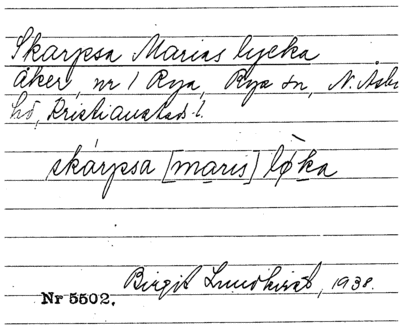 Skarpsa Marias lycka
åker, nr 1 Rya, Rya sn, N. Åsbo
hd, Kristianstad l.
skárpsa [maris] lø̀ka
Birgit Lundkvist, 1938.
Nr 5502.